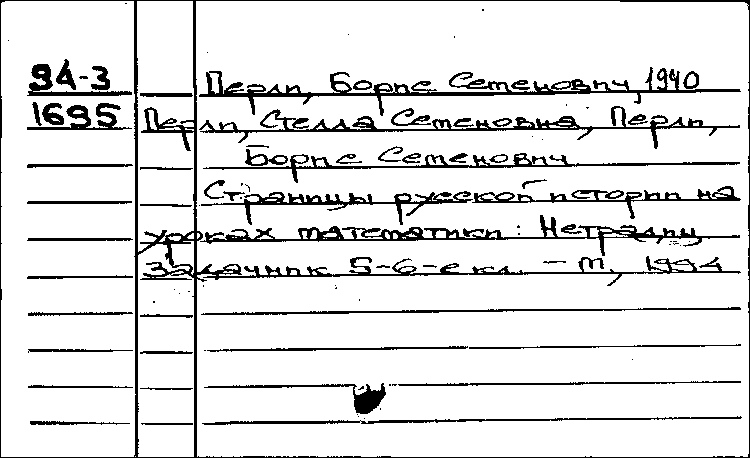 94-3
Перли, Борис Семенович, 1940
1695
Перли, Стелла Семеновна, Перли,
Борис Семенович
Страницы русской истории на
уроках математики: Нетрадиц
Задачник 5-6-е кл. - М, 1994